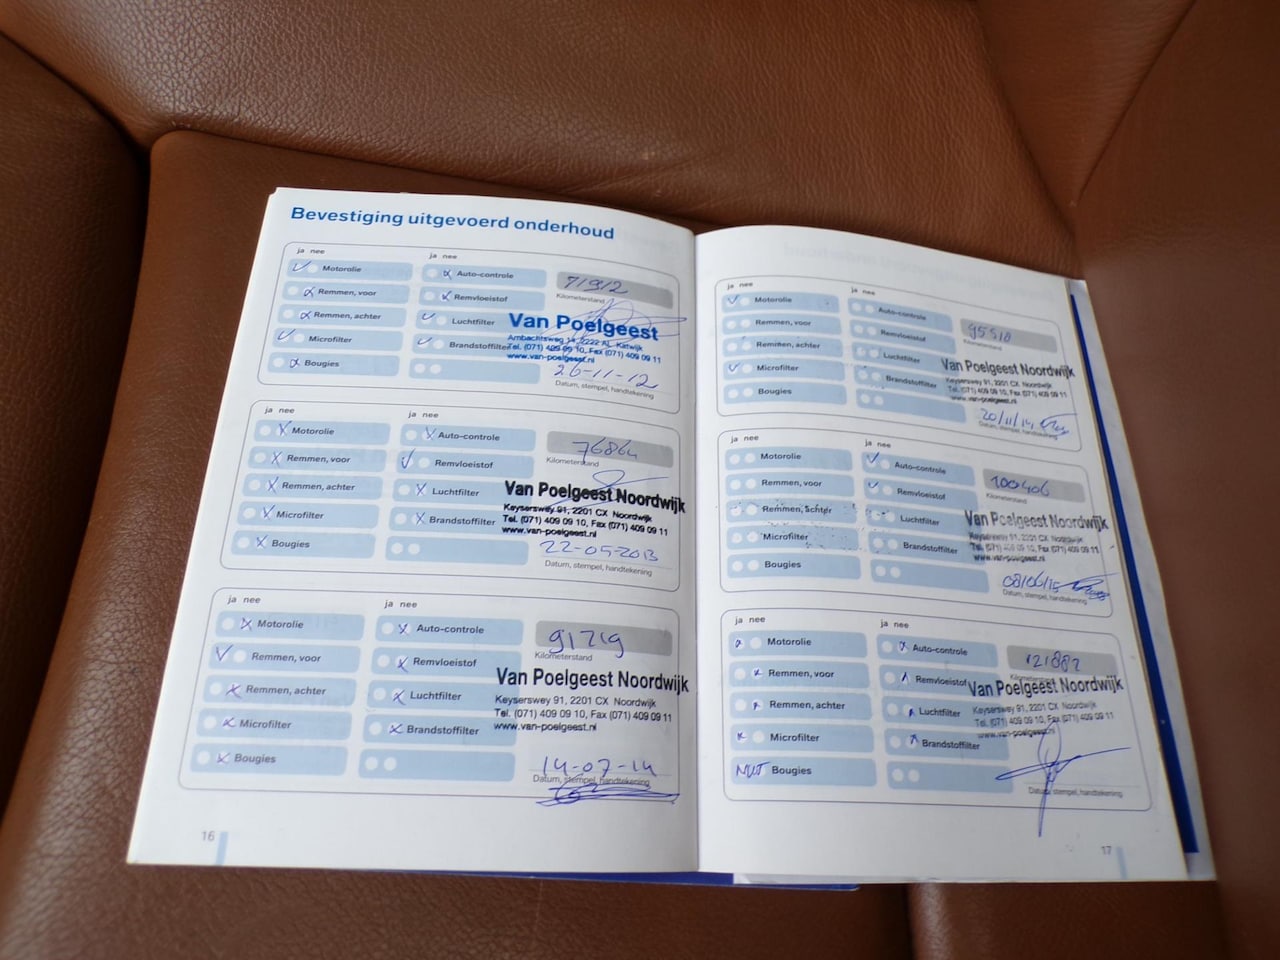 Bevestiging uitgevoerd onderhoud
ja nee
ja nee
Motorolie
Auto-controle
71912
Remmen, voor
Remvloeistof
Kilometerstand
Remmen, achter
Luchtfilter
Van Poelgeest
Ambachtsweg 14, 2222 AL Katwijk
Microfilter
Brandstoffilter
Tel. (071) 409 09 10, Fax (071) 409 09 11
www.van-poelgeest.nl
Bougies
26-11-12
Datum, stempel, handtekening
ja nee
ja nee
Motorolie
Auto-controle
76864
Remmen, voor
Remvloeistof
Kilometerstand
Remmen, achter
Luchtfilter
Van Poelgeest Noordwijk
Keyserswey 91, 2201 CX Noordwijk
Microfilter
Brandstoffilter
Tel. (071) 409 09 10, Fax (071) 409 09 11
www.van-poelgeest.nl
Bougies
22-05-2013
Datum, stempel, handtekening
ja nee
ja nee
Motorolie
Auto-controle
91719
Remmen, voor
Remvloeistof
Kilometerstand
Remmen, achter
Luchtfilter
Van Poelgeest Noordwijk
Keyserswey 91, 2201 CX Noordwijk
Microfilter
Brandstoffilter
Tel. (071) 409 09 10, Fax (071) 409 09 11
www.van-poelgeest.nl
Bougies
14-07-14
Datum, stempel, handtekening
16
ja nee
ja nee
Motorolie
Auto-controle
95510
Remmen, voor
Remvloeistof
Kilometerstand
Remmen, achter
Luchtfilter
Van Poelgeest Noordwijk
Keyserswey 91, 2201 CX Noordwijk
Microfilter
Brandstoffilter
Tel. (071) 409 09 10, Fax (071) 409 09 11
www.van-poelgeest.nl
Bougies
20/11/14
Datum, stempel, handtekening
ja nee
ja nee
Motorolie
Auto-controle
100406
Remmen, voor
Remvloeistof
Kilometerstand
Remmen, achter
Luchtfilter
Van Poelgeest Noordwijk
Keyserswey 91, 2201 CX Noordwijk
Microfilter
Brandstoffilter
Tel. (071) 409 09 10, Fax (071) 409 09 11
www.van-poelgeest.nl
Bougies
08/06/15
Datum, stempel, handtekening
ja nee
ja nee
Motorolie
Auto-controle
121882
Remmen, voor
Remvloeistof
Kilometerstand
Remmen, achter
Luchtfilter
Van Poelgeest Noordwijk
Keyserswey 91, 2201 CX Noordwijk
Microfilter
Brandstoffilter
Tel. (071) 409 09 10, Fax (071) 409 09 11
www.van-poelgeest.nl
Bougies
Datum, stempel, handtekening
17